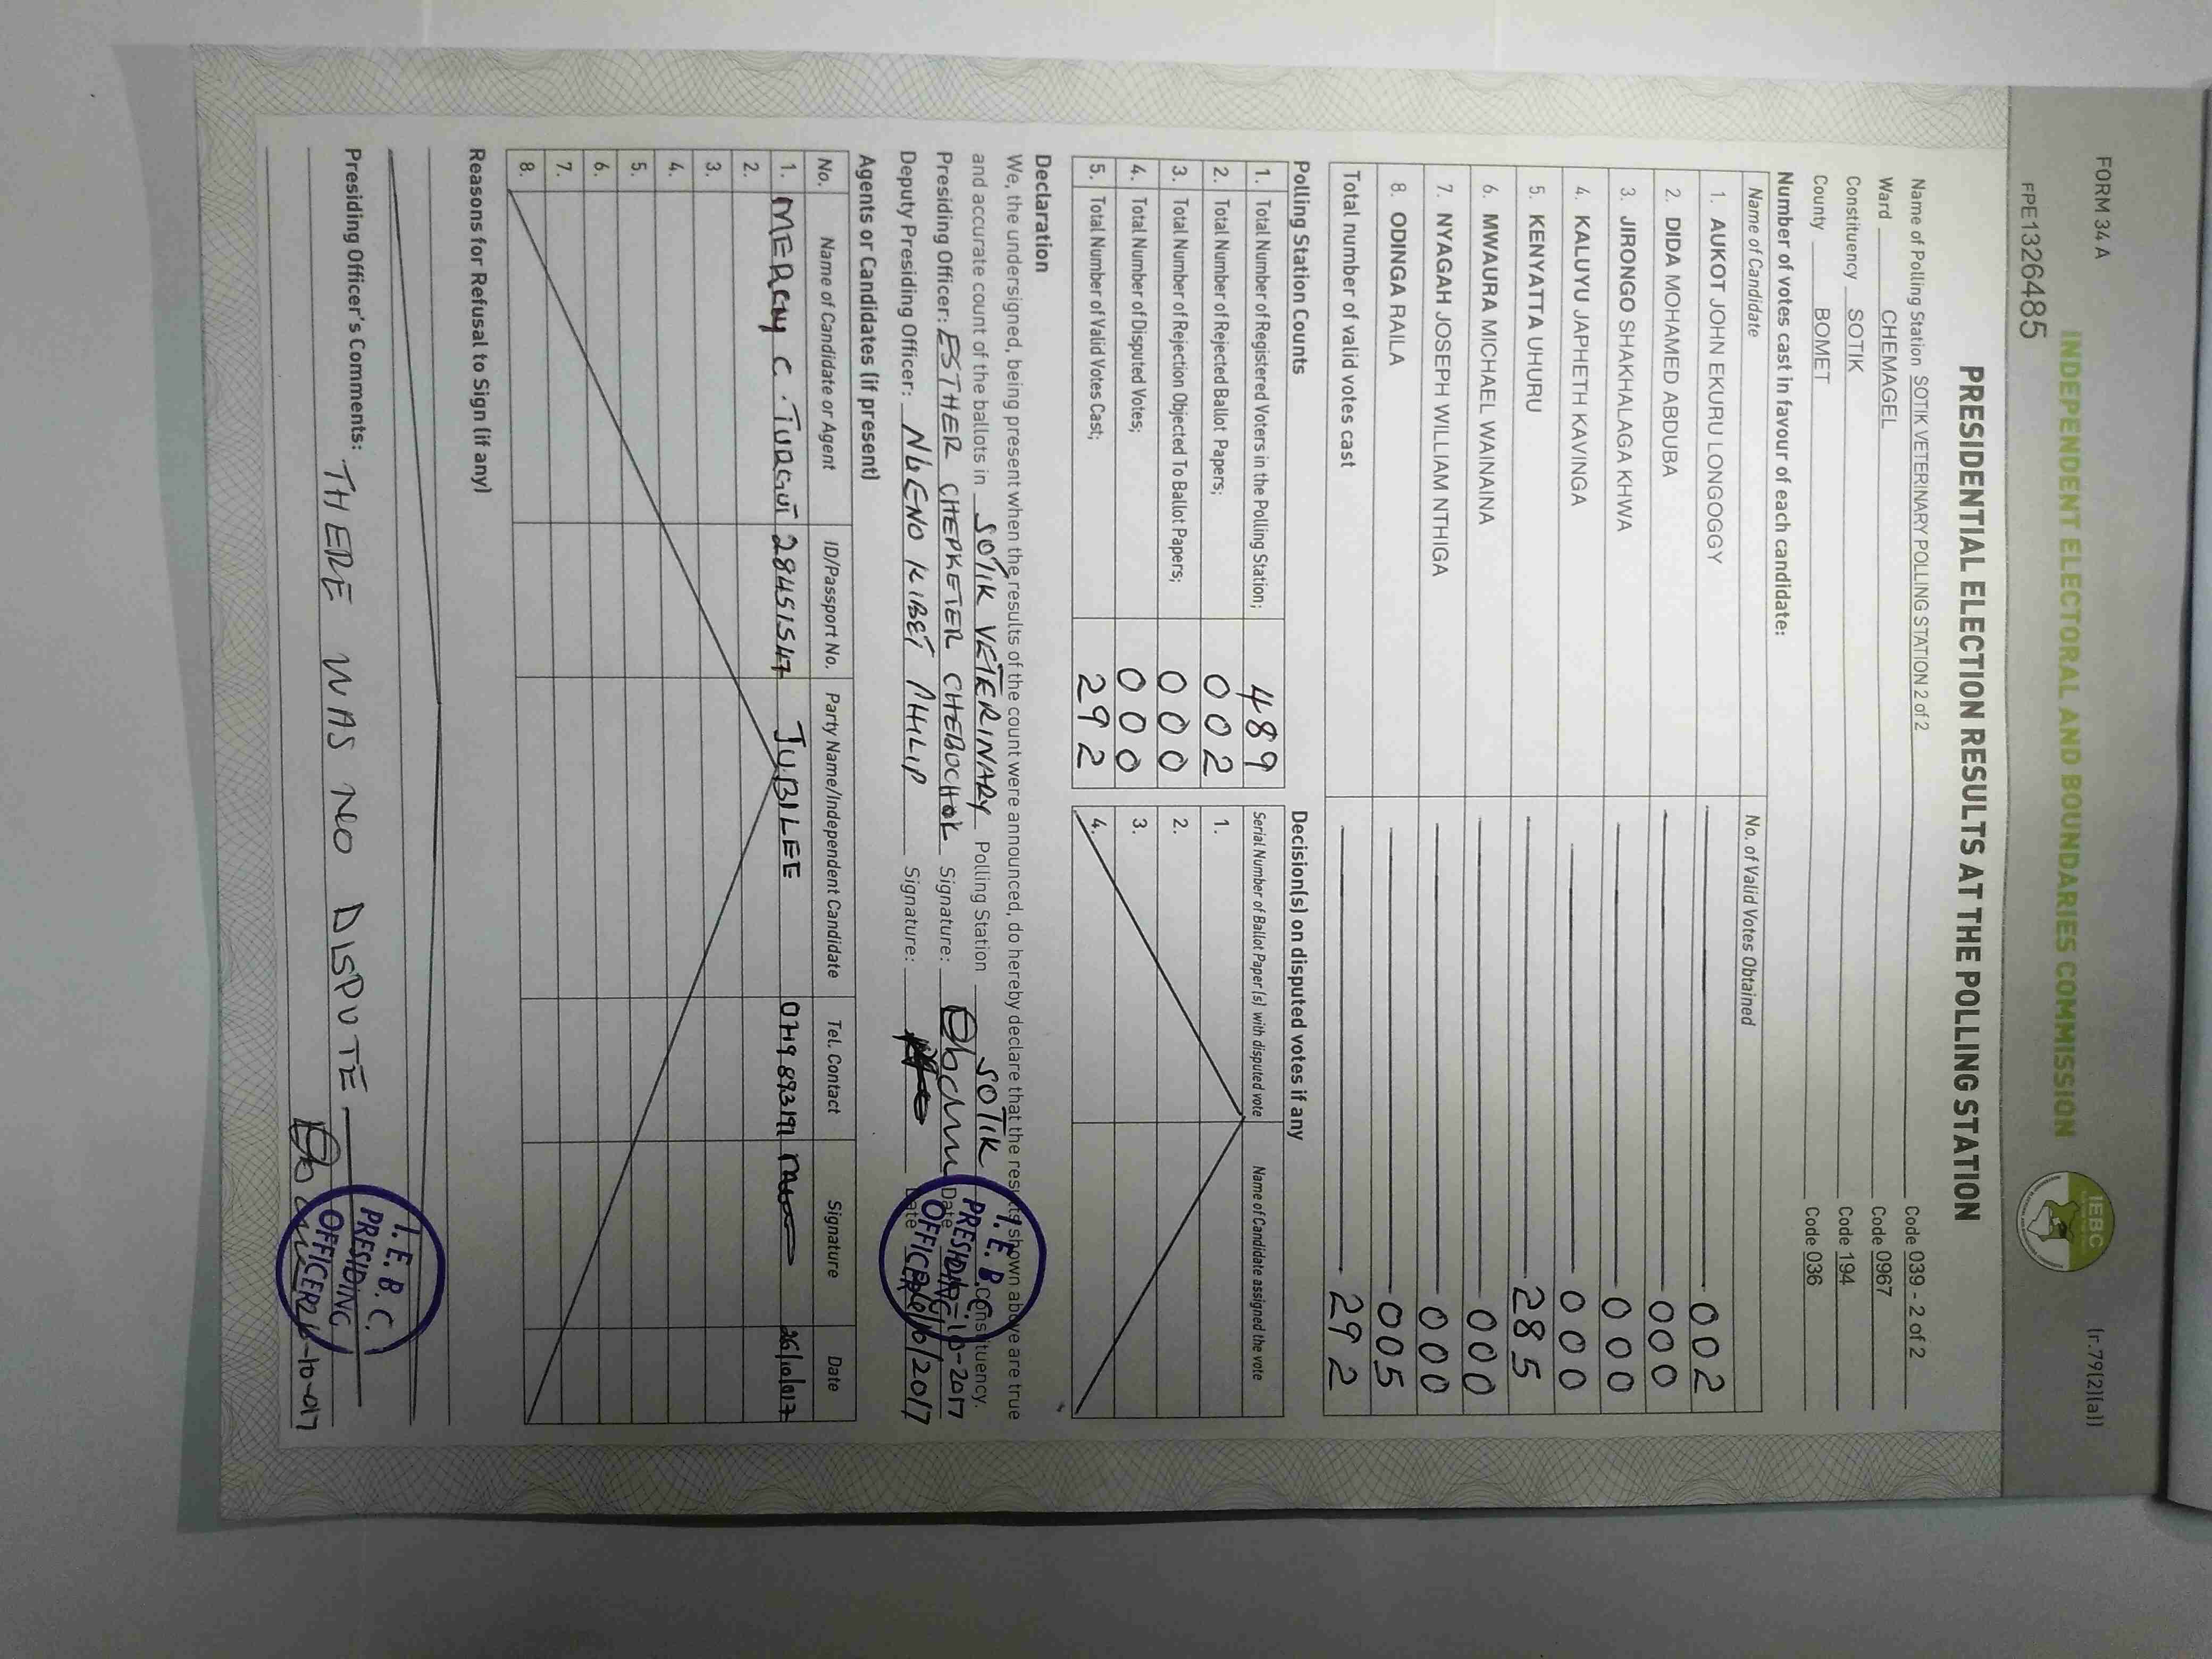 FORM 34 A
(r.79(2)(a))
INDEPENDENT ELECTORAL AND BOUNDARIES COMMISSION
IEBC
FPE1326485
PRESIDENTIAL ELECTION RESULTS AT THE POLLING STATION
Name of Polling Station SOTIK VETERINARY POLLING STATION 2 of 2 Code 039 - 2 of 2
Ward CHEMAGEL Code 0967
Constituency SOTIK Code 194
County BOMET Code 036
Number of votes cast in favour of each candidate:
Name of Candidate No. of Valid Votes Obtained
1. AUKOT JOHN EKURU LONGOGGY 002
2. DIDA MOHAMED ABDUBA 000
3. JIRONGO SHAKHALAGA KHWA 000
4. KALUYU JAPHETH KAVINGA 000
5. KENYATTA UHURU 285
6. MWAURA MICHAEL WAINAINA 000
7. NYAGAH JOSEPH WILLIAM NTHIGA 000
8. ODINGA RAILA 005
Total number of valid votes cast 292
Polling Station Counts Decision(s) on disputed votes if any
1. Total Number of Registered Voters in the Polling Station; 489
2. Total Number of Rejected Ballot Papers; 002
3. Total Number of Rejection Objected To Ballot Papers; 000
4. Total Number of Disputed Votes; 000
5. Total Number of Valid Votes Cast; 292
Serial Number of Ballot Paper(s) with disputed vote Name of Candidate assigned the vote
1.
2.
3.
4.
Declaration
We, the undersigned, being present when the results of the count were announced, do hereby declare that the results shown above are true
and accurate count of the ballots in SOTIK VETERINARY Polling Station SOTIK Constituency.
Presiding Officer: ESTHER CHEPKETER CHEBOCHOK Signature: Date -10-2017
Deputy Presiding Officer: NGENO KIBET PHILIP Signature: Date 26/10/2017
I.E.B.C. PRESIDING OFFICER
Agents or Candidates (if present)
No. Name of Candidate or Agent ID/Passport No. Party Name/Independent Candidate Tel. Contact Signature Date
1. MERCY C. 28451547 JUBILEE 0719893191 26/10/017
2.
3.
4.
5.
6.
7.
8.
Reasons for Refusal to Sign (if any)
Presiding Officer's Comments: THERE WAS NO DISPUTE
I.E.B.C. PRESIDING OFFICER
26-10-017